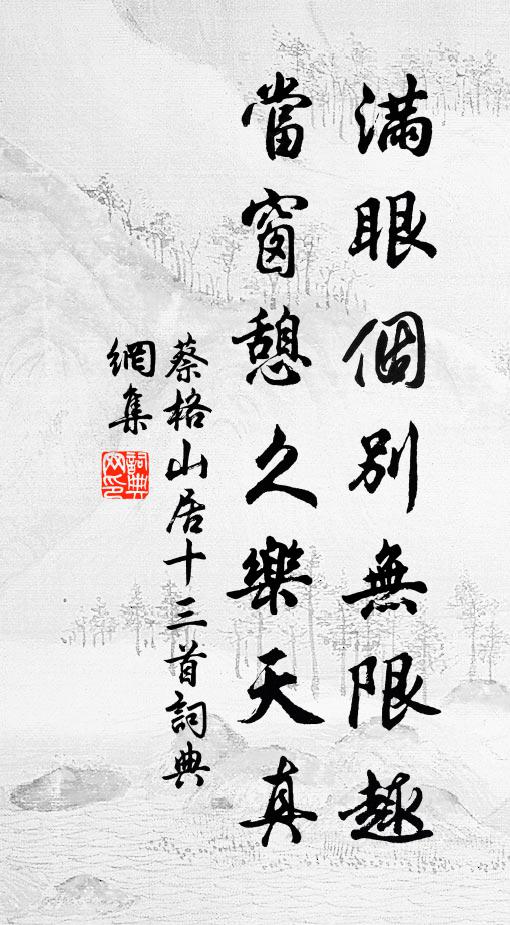 滿眼個別無限趣
當窗憩久樂天真
蔡格山居十三首詞典
網集
詞典網印